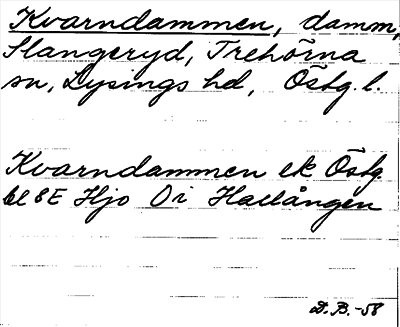 Kvarndammen, damm,
Slangeryd, Trehörna
sn, Lysings hd, Östg. l.
Kvarndammen ek Östg.
bl 8E Hjo Oi Hallången
D. B. -58